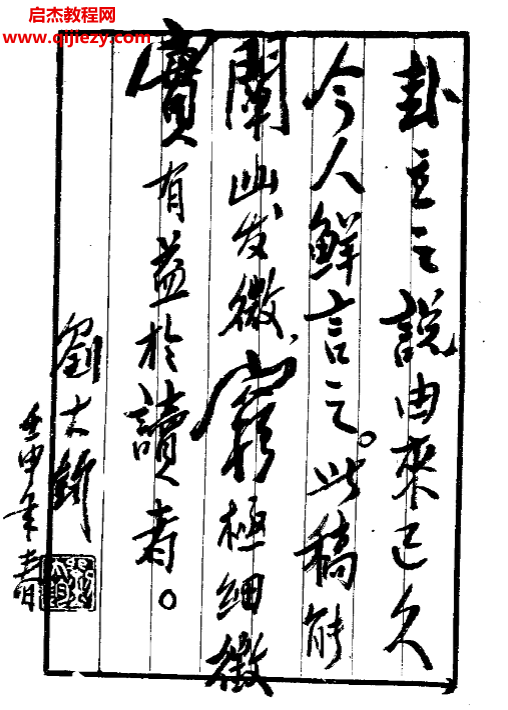 启杰教程网
www.qijiezy.com
卦主之說由來已久
今人鮮言之。此稿能
闡幽发微、窮極细微
實有益於讀者。
劉大鈞
壬申年春